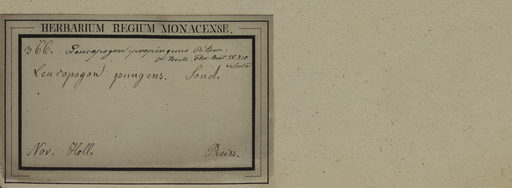 HERBARIUM REGIUM MONACENSE.
366. Leucopogon propinquus R. Brown.
Benth. Flor. Aust. IV. 210
Leucopogon pungens. Sond.
Nov. Holl. Preiss.